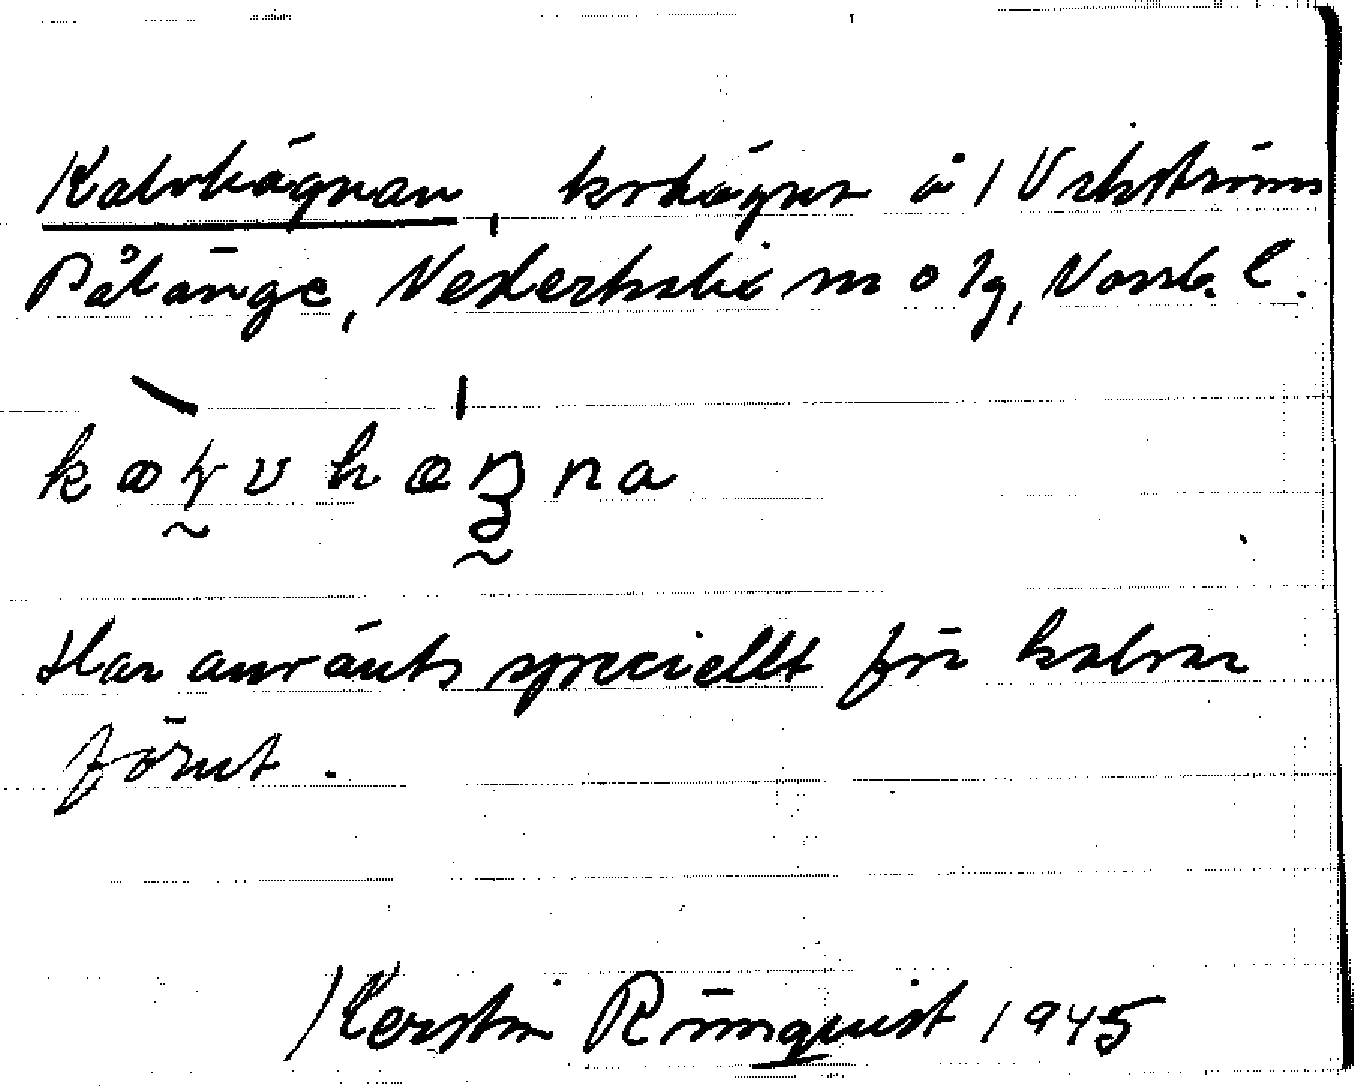 Kalvhägnan, kohägn å 1 Vikström
Pålänge, Nederkalix m o lg, Norrb. l.
kæɽvhæŋna
Har använts speciellt för kalvar
förut.
Kerstin Rönnquist 1945